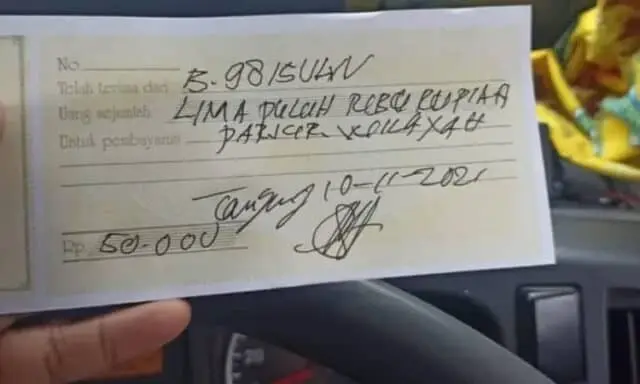 No
Telah terima dari B-9815UWV
Uang sejumlah LIMA PULUH RIBU RUPIAH
Untuk pembayaran PARKIR WILAYAH
10-11-2021
Rp. 50.000